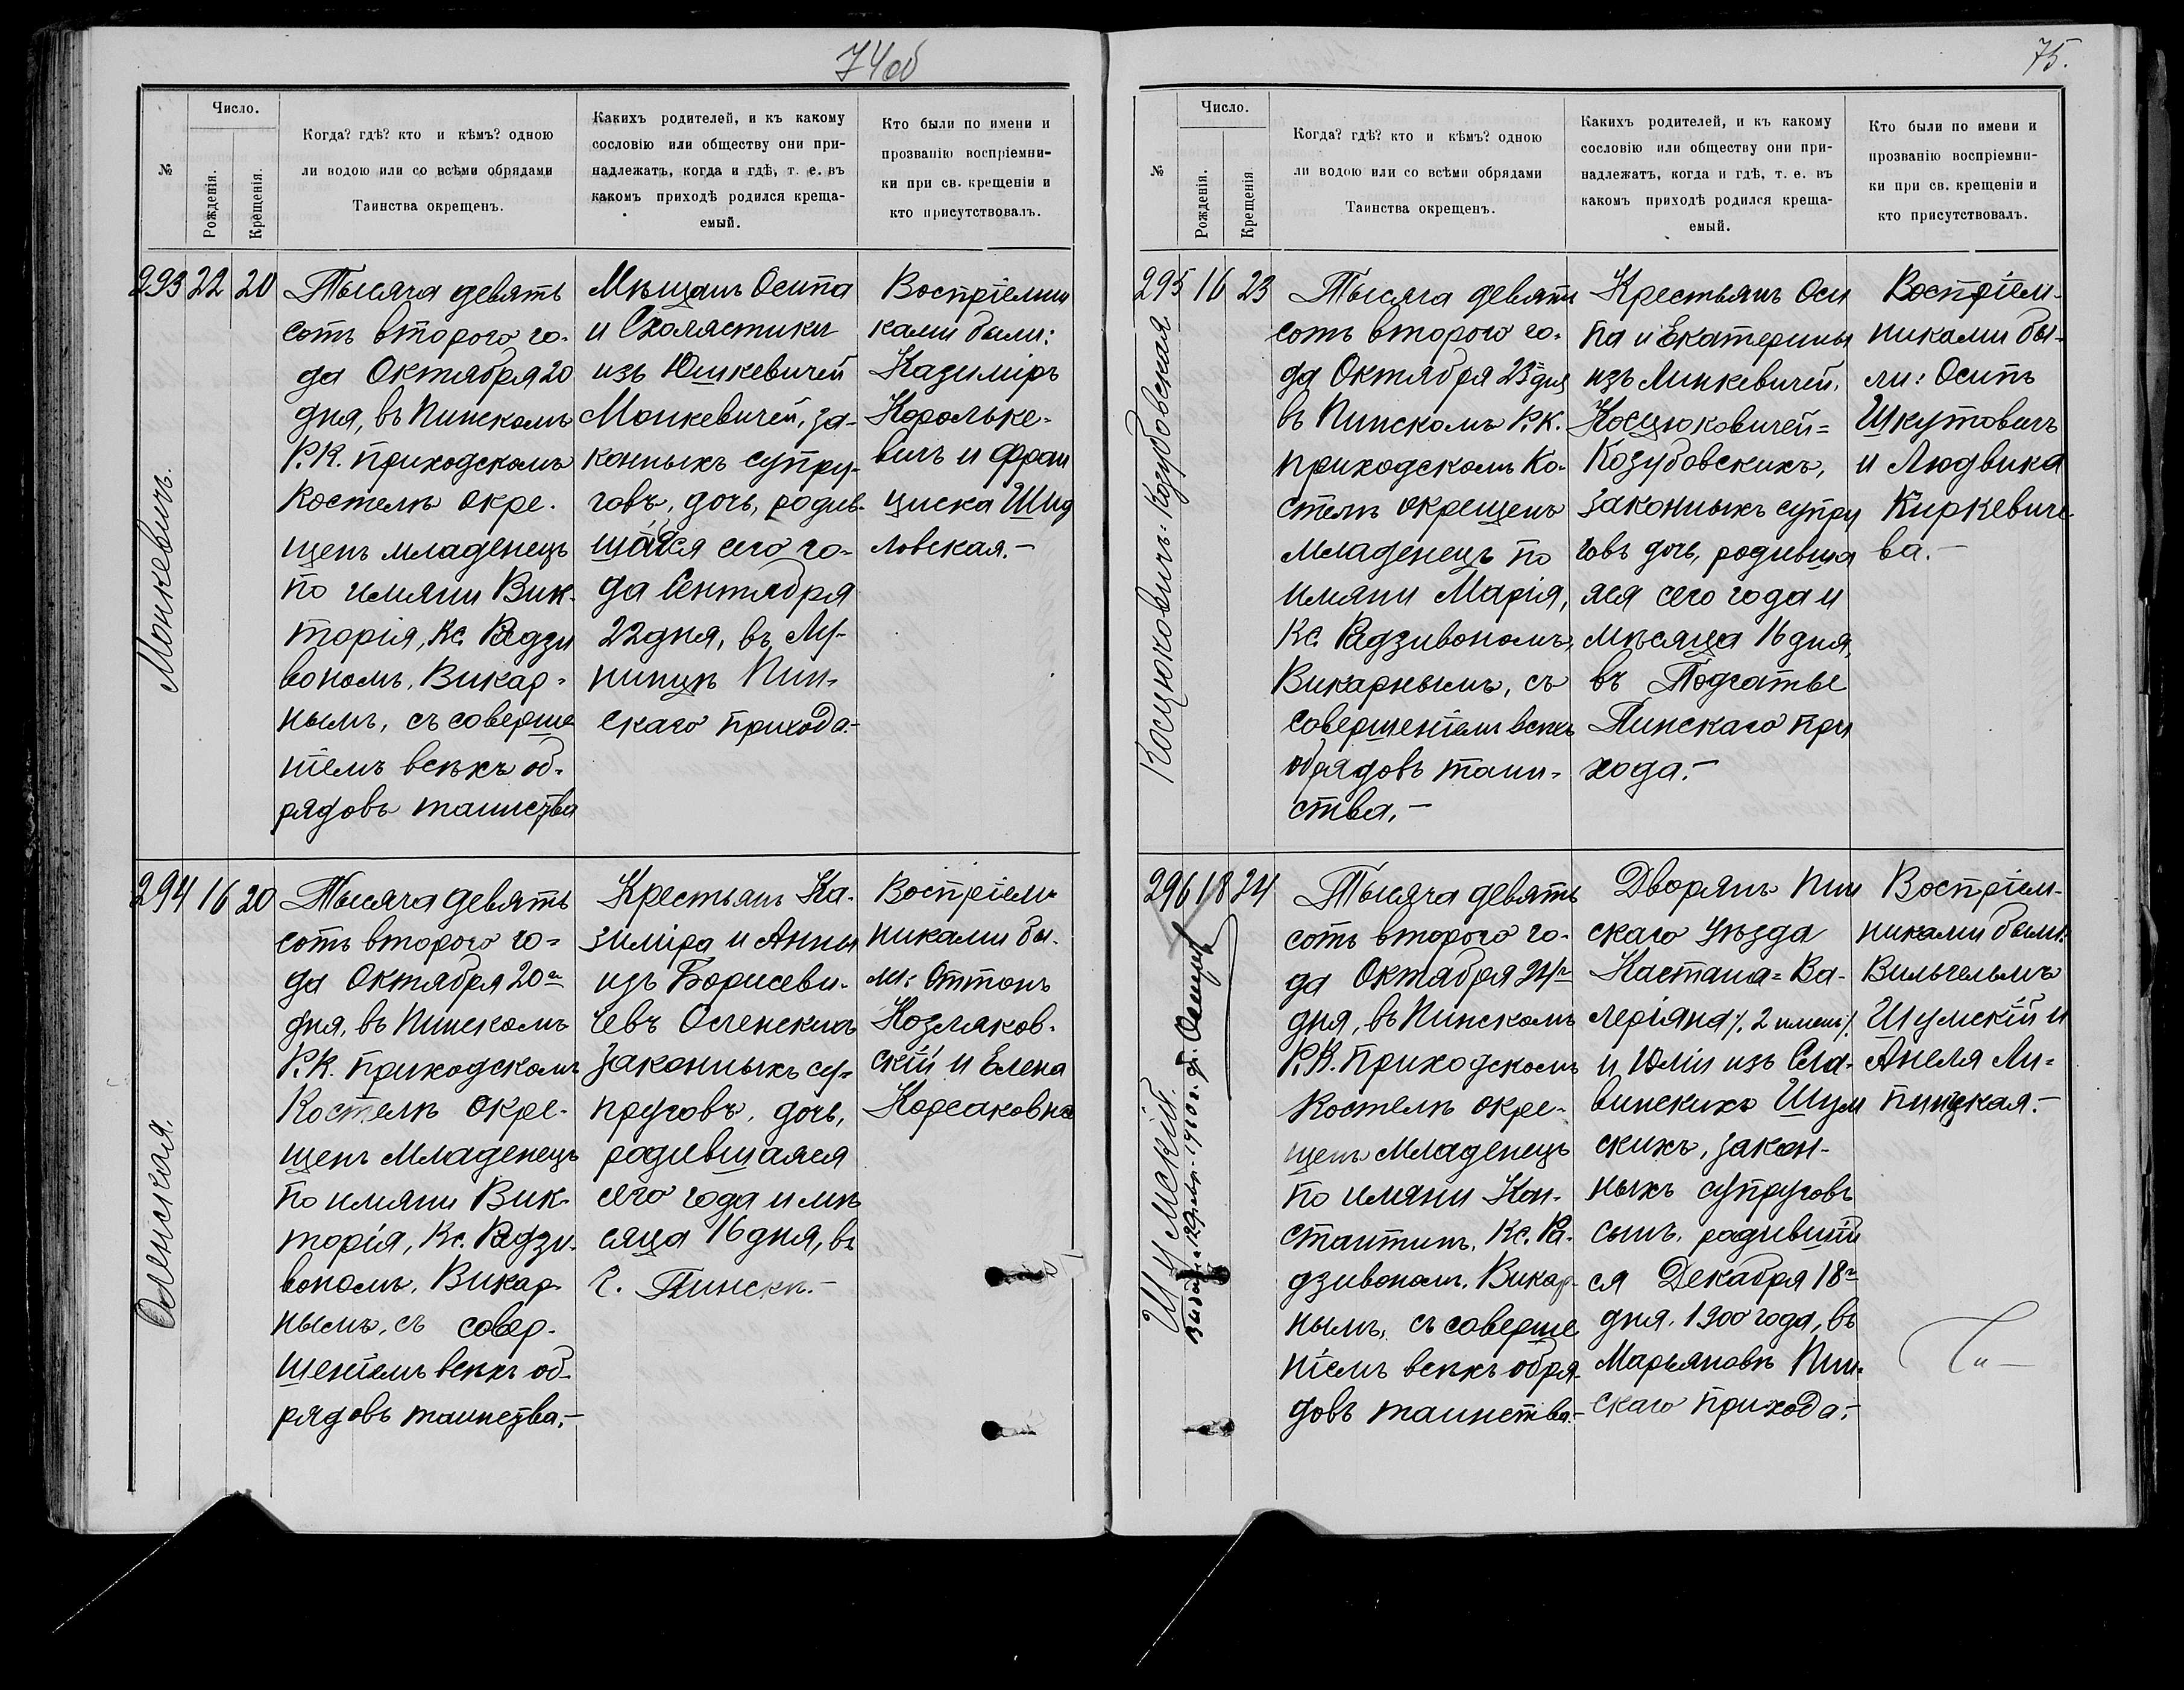 74об
№
Число.
Рожденія.
Крещенія.
Когда? гдѣ? кто и кѣмъ? одною
ли водою или со всѣми обрядами
Таинства окрещенъ.
Какихъ родителей, и къ какому
сословію или обществу они при-
надлежатъ, когда и гдѣ, т. е. въ
какомъ приходѣ родился креща-
емый.
Кто были по имени и
прозванію воспріемни-
ки при св. крещеніи и
кто присутствовалъ.
293 22 20
Монкевичъ.
Тысяча девять
сотъ второго го-
да Октября 20
дня, въ Пинскомъ
Р.К. приходскомъ
Костелѣ окре-
щенъ младенецъ
по имяни Вик-
торія, Кс. Радзи
вономъ, Викар-
нымъ, съ соверше
ніемъ всѣхъ об-
рядовъ таинства
Мѣщанъ Осипа
и Схолястики
изъ Юшкевичей
Монкевичей, за-
конныхъ супру-
говъ, дочь, родив-
шаяся сего го-
да Сентября
22 дня, въ Лу-
нинцѣ Пин-
скаго прихода.-
Воспріемни
ками были:
Казиміръ
Королько-
вичъ и Фран
циска Шид
ловская.-
294 16 20
Осленская.
Тысяча девять
сотъ второго го-
да Октября 20го
дня, въ Пинскомъ
Р.К. приходскомъ
Костелѣ окре-
щенъ Младенецъ
по имяни Вик-
торія, Кс. Радзи-
вономъ, Викар-
нымъ, съ совер-
шеніемъ всѣхъ об-
рядовъ таинства.-
Крестьянъ Ка-
зиміра и Анны
изъ Борисеви-
чевъ Осленскихъ
законныхъ су-
пруговъ, дочь,
родившаяся
сего года и мѣ
сяца 16 дня, въ
г. Пинскѣ.-
Воспріем-
никами бы-
ли: Оттонъ
Козляков-
скій и Елена
Корсаковна
75.
№
Число.
Рожденія.
Крещенія
Когда? гдѣ? кто и кѣмъ? одною
ли водою или со всѣми обрядами
Таинства окрещенъ.
Какихъ родителей, и къ какому
сословію или обществу они при-
надлежатъ, когда и гдѣ, т. е. въ
какомъ приходѣ родился креща-
емый.
Кто были по имени и
прозванію воспріемни-
ки при св. крещеніи и
кто присутствовалъ.
295 16 23
Косцюковичъ-Козубовская
Тысяча девять
сотъ второго го-
да Октября 23го дня
въ Пинскомъ Р.К.
приходскомъ Ко-
стелѣ окрещенъ
Младенецъ по
имяни Марія,
Кс. Радзивономъ,
Викарнымъ, съ
совершеніемъ всѣхъ
обрядовъ таин-
ства.-
Крестьянъ Оси
па и Екатерины
изъ Минкевичей,
Косцюковичей=
Козубовскихъ,
законныхъ супру
говъ дочь, родивша
яся сего года и
мѣсяца 16 дня,
въ Подгатье
Пинскаго при
хода.-
Воспріем-
никами бы-
ли: Осипъ
Шкутовичъ
и Людвика
Киркевиче-
ва.-
296 18 24
Шумскій.
Тысяча девять
сотъ второго го-
да Октября 24го
дня, въ Пинскомъ
Р.К. Приходскомъ
Костелѣ окре-
щенъ Младенецъ
по имяни Кон-
стантинъ, Кс. Ра-
дзивономъ, Викар-
нымъ, съ соверше
ніемъ всѣхъ обря-
довъ таинства.-
Дворянъ Пин
скаго уѣзда
Каетана=Ва-
леріяна /. 2 именъ /.
и Юліи изъ Сла-
винскихъ Шум
скихъ, закон-
ныхъ супруговъ
сынъ, родивший
ся Декабря 18го
дня. 1900 года, въ
Марьяновѣ Пин-
скаго прихода.-
Воспріем-
никами были:
Вильгельмъ
Шумскій и
Анеля Ли-
пицкая.-